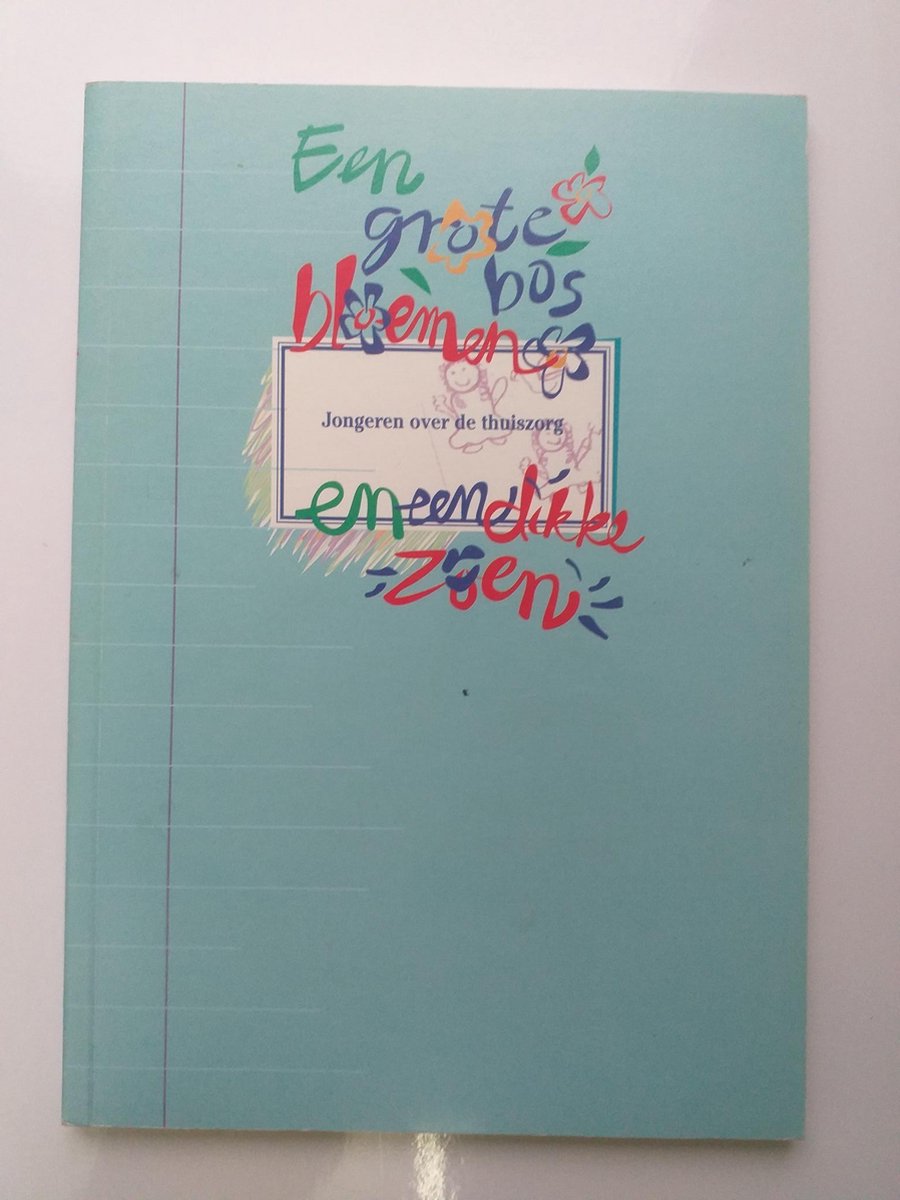 Een
grote
bos
bloemen
Jongeren over de thuiszorg
en een dikke
zoen